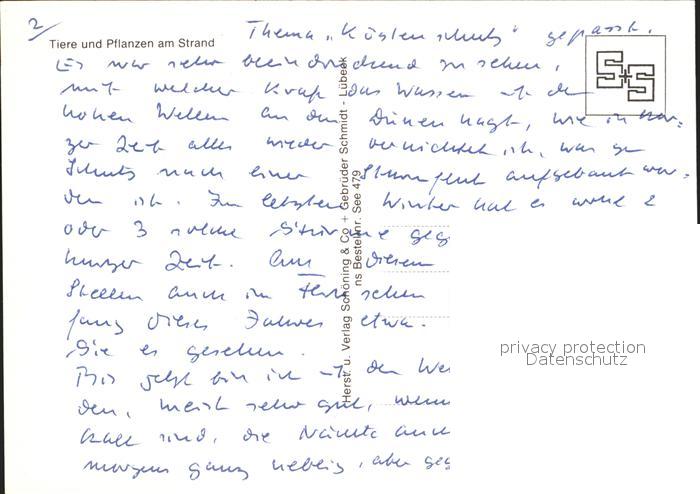 2
Tiere und Pflanzen am Strand
Thema „Küstenschutz" gepasst.
Es war sehr beeindruckend zu sehen,
mit welcher Kraft das Wasser mit den
hohen Wellen an den Dünen nagt, wie in kur-
zer Zeit alles wieder vernichtet ist, was zum
Schutz nach einer Sturmflut aufgebaut wor-
den ist. Im letzten Winter hat es wohl 2
oder 3 solche Stürme
kurzer Zeit. diesen
Stellen auch im
dieses Jahres etwa.
Sie es gesehen.
Bis jetzt bin ich mit dem
den, meist sehr gut, wenn
kalt sind, die Nächte auch
morgens ganz neblig, aber
Herst. u. Verlag Schöning & Co + Gebrüder Schmidt - Lübeck
ns Bestellnr. See 479
S+S
privacy protection
Datenschutz